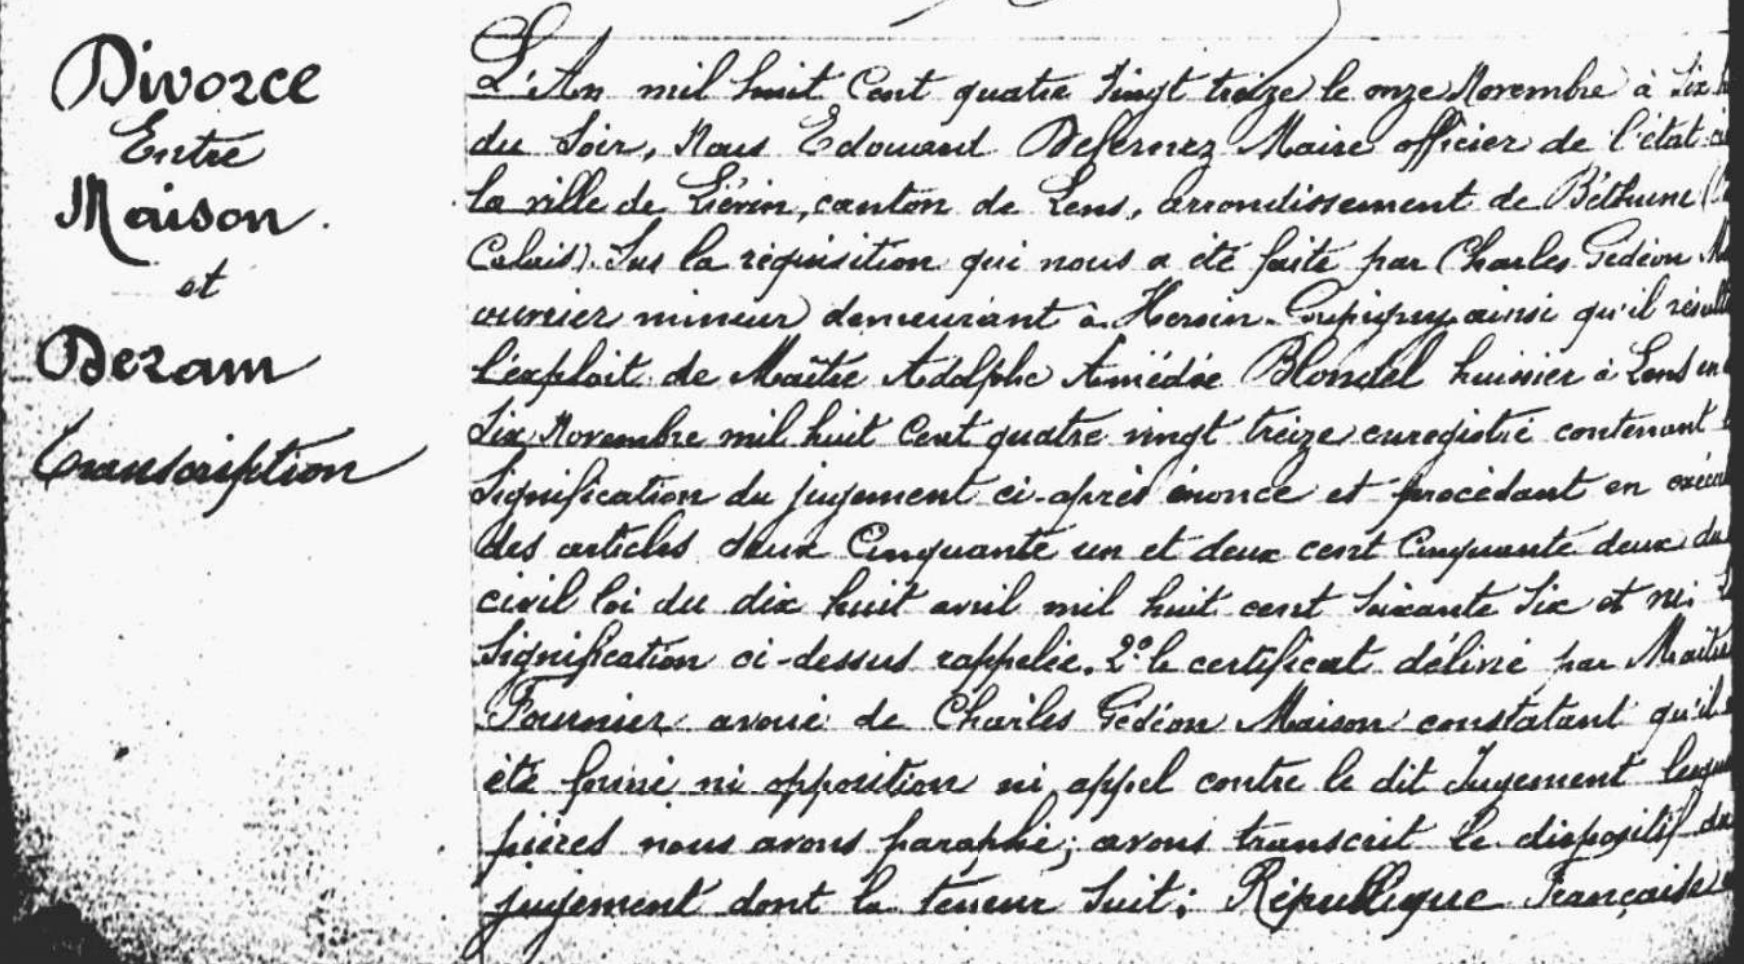 Divorce
Entre
Maison.
et
Dezam
Transcription
L'An mil huit Cent quatre vingt treize le onze Novembre à Six
du Soir, Nous Edouard Defernez Maire officier de l'état
la ville de Liévin, canton de Lens, arrondissement de Béthune
Calais). Sur la réquisition qui nous a été faite par Charles Gédéon
ouvrier mineur demeurant à Hersin-Coupigny ainsi qu'il
l'exploit de Maître Adolphe Amédée Blondel huissier à Lens en
Six Novembre mil huit Cent quatre vingt treize enregistré contenant
Signification du jugement ci-après énoncé et procédant en
des articles deux Cinquante un et deux cent Cinquante deux du
civil loi du dix huit avril mil huit cent Soixante Six et
Signification ci-dessus rappelée. 2º le certificat délivré par Maître
Fournier avoué de Charles Gédéon Maison constatant qu'il
été formé ni opposition ni appel contre le dit Jugement
pièces nous avons paraphé; avons transcrit le dispositif du
jugement dont la teneur Suit: République Française